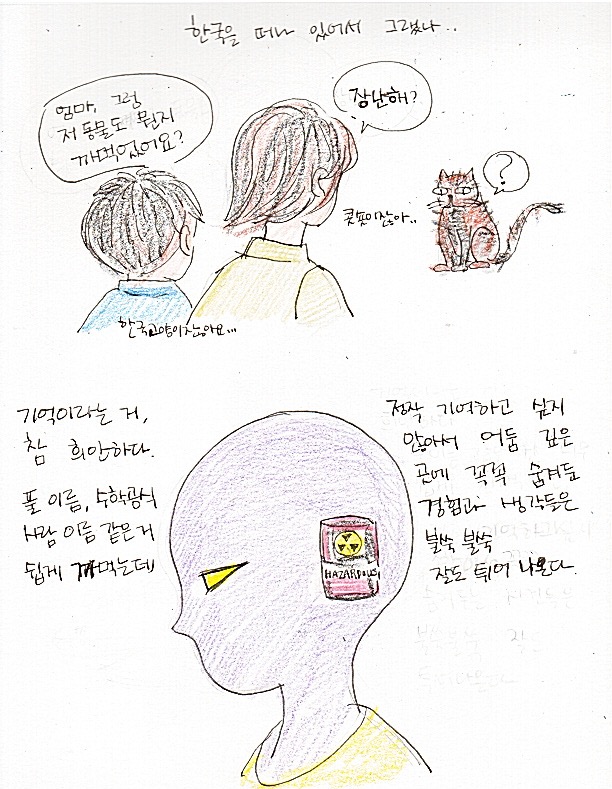 한국을 떠나 있어서 그랬나..
엄마, 그럼
저 동물도 뭔지
까먹었어요?
장난해?
?
콧풋이잖아..
한국고양이잖아요...
기억이라는 거,
참 희안하다.
풀 이름, 수학공식
사람 이름 같은거
쉽게 까먹는데
HAZARDOUS
정작 기억하고 싶지
않아서 어둠 깊은
곳에 꼭꼭 숨겨둔
경험과 생각들은
불쑥 불쑥
잘도 튀어 나온다.